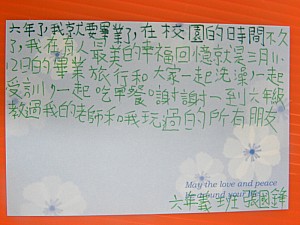 六年了,我就要畢業了,在校園的時間不久
了,我在有人最美的幸福回憶就是三月11、
12日的畢業旅行和大家一起洗澡,一起
受訓,一起吃早餐。謝謝一到六級
教過我的老師和我玩過的所有朋友
May the love and peace
around you
六年義班 張國鋒